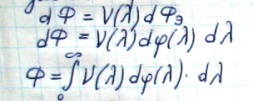 dФ = V(λ) dФэ
dФ = V(λ) dφ(λ) dλ
Ф = ∫₀^∞ V(λ) dφ(λ) · dλ